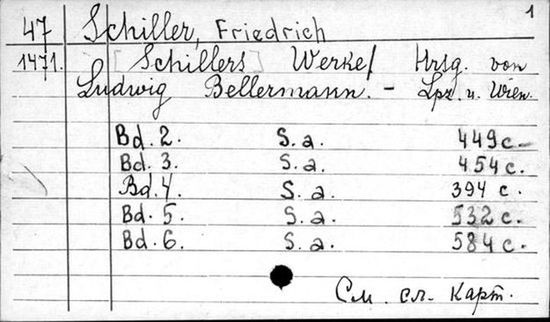 1
47 Schiller, Friedrich
1471. [Schillers] Werke/ Hrsg. von
Ludwig Bellermann. - Lpz. u. Wien.
Bd. 2. S. a. 449 c.
Bd. 3. S. a. 454 c.
Bd. 4. S. a. 394 c.
Bd. 5. S. a. 532 c.
Bd. 6. S. a. 584 c.
См. сл. карт.